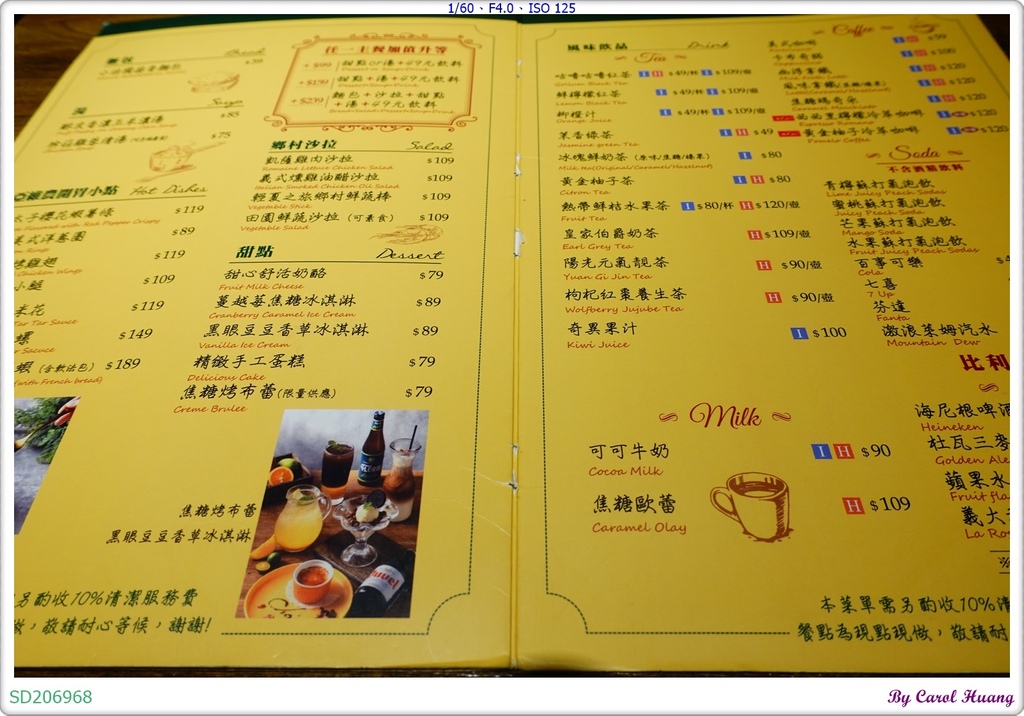 1/60、F4.0、ISO 125
Bread
$39
湯
Soup
$85
$75
開胃小點 Hot Dishes
$119
$89
$119
Chicken Wings
$109
米花
$119
Tar Tar Sauce
螺
$149
蝦 (含軟法包) $189
(with French bread)
任一主餐加價升等
甜點+湯+49元飲料
麵包+沙拉+甜點
+湯+49元飲料
鄉村沙拉 Salad
凱薩雞肉沙拉 $109
Romaine Lettuce Chicken Salad
義式燻雞油醋沙拉 $109
Italian Smoked Chicken Oil Salad
輕夏之旅鄉村鮮蔬棒 $109
Vegetable Stick
田園鮮蔬沙拉 (可素食) $109
Vegetable Salad
甜點 Dessert
甜心舒活奶酪 $79
Fruit Milk Cheese
蔓越莓焦糖冰淇淋 $89
Cranberry Caramel Ice Cream
黑眼豆豆香草冰淇淋 $89
Vanilla Ice Cream
精緻手工蛋糕 $79
Delicious Cake
焦糖烤布蕾(限量供應) $79
Creme Brulee
焦糖烤布蕾
黑眼豆豆香草冰淇淋
另酌收10%清潔服務費
做，敬請耐心等候，謝謝!
風味飲品 Drink
Tea
咕嚕咕嚕紅茶 I H $49/杯 I $109/壺
鮮檸檬紅茶 I $49/杯 I $109/壺
Lemon Black Tea
柳橙汁 I $49/杯 I $109/壺
Orange Juice
茉香綠茶 I H $49
Jasmine green Tea
冰磚鮮奶茶 (原味/焦糖/榛果) I $80
Milk Tea(Original/Caramel/Hazelnut)
黃金柚子茶 I H $80
熱帶鮮桔水果茶 I $80/杯 H $120/壺
Fruit Tea
皇家伯爵奶茶 H $109/壺
Earl Grey Tea
陽光元氣靚茶 H $90/壺
Yuan Gi Jin Tea
枸杞紅棗養生茶 H $90/壺
Wolfberry Jujube Tea
奇異果汁 I $100
Kiwi Juice
Milk
可可牛奶 I H $90
Cocoa Milk
焦糖歐蕾 H $109
Caramel Olay
Coffee
美式咖啡 I H $99
I H $100
I H $120
I H $120
I H $120
$120
黃金柚子冷萃咖啡 $120
Pomelo Coffee
Soda
不含酒精飲料
青檸蘇打氣泡飲
Lime Juicy Peach Sodas
蜜桃蘇打氣泡飲
Juicy Peach Soda
芒果蘇打氣泡飲
Mango Soda
水果蘇打氣泡飲
Fruit Juicy Peach Sodas
百事可樂
Cola
七喜
7 Up
芬達
Fanta
激浪萊姆汽水
Mountain Dew
比利
海尼根啤酒
Heineken
杜瓦三麥
Golden Ale
蘋果水
Fruit fla
義大
La Ro
本菜單需另酌收10%清
餐點為現點現做，敬請耐
SD206968
By Carol Huang